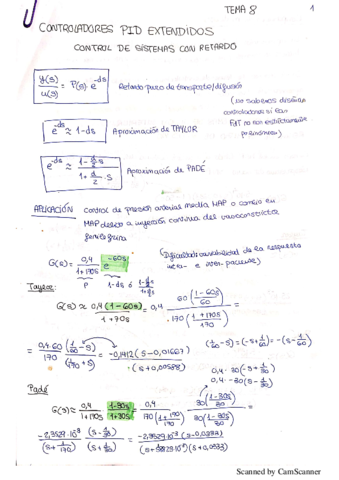 TEMA 8 1
CONTROLADORES PID EXTENDIDOS
CONTROL DE SISTEMAS CON RETARDO
y(s)/u(s) = P(s) · e^-ds Retardo puro de transporte/difusión
(no sabemos diseñar
controladores si esta
FdT no es estrictamente
e^-ds ≈ 1-ds Aproximación de TAYLOR
e^-ds ≈ (1 - d/2 s)/(1 + d/2 · s) Aproximación de PADÉ
APLICACIÓN control de presión arterial media MAP o cambio en
MAP a inyección continua del vasoconstrictor
(Dificultad: variabilidad de la respuesta
intra- e inter-pacientes)
G(s) = 0,4/(1+170s) e^-60s
P 1-ds ó (1-d/2 s)/(1+d/2 s)
Taylor:
G(s) ≈ 0,4 (1-60s)/(1+170s) = 0,4 60 (1-60s/60)/(170 (1+170s/170)) =
= 0,4·60/170 (1/60 - s)/(1/170 + s) = -0,1412 (s-0,01667)/(s+0,00588)
(1/60 - s) = (-s+1/60) = -(s-1/60)
0,4·30(-s+1/30)
0,4·-30(s-1/30)
Padé
G(s) ≈ 0,4/(1+170s) (1-30s)/(1+30s) = 0,4/(170(1+170s/170)) 30(1-30s/30)/(30(1+30s/30)) =
-2,3529·10^-3/(s+1/170) (s-1/30)/(s+1/30) = -2,3529·10^-3 (s-0,0333)/((s+5,882·10^-3)(s+0,0333))
Scanned by CamScanner